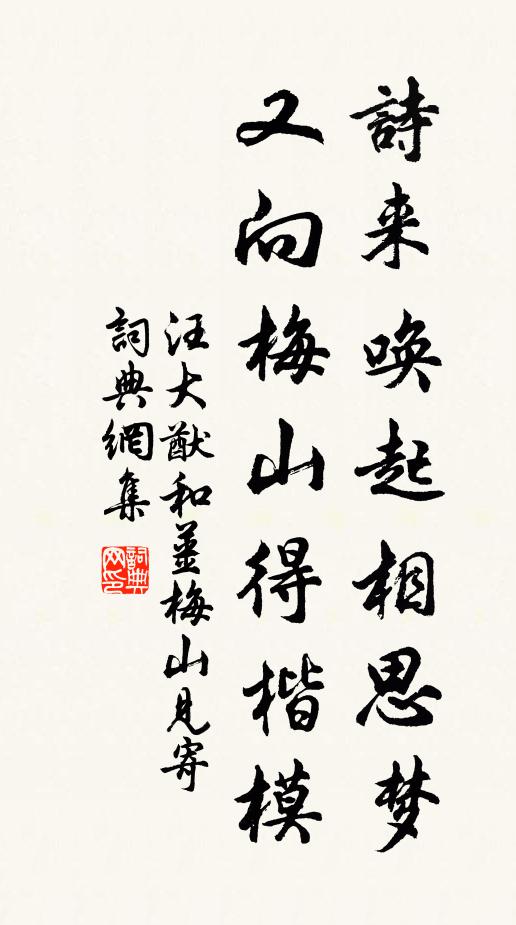 詩来唤起相思梦
又向梅山得楷模
汪大猷和薑梅山見寄
詞典網集
詞典网印